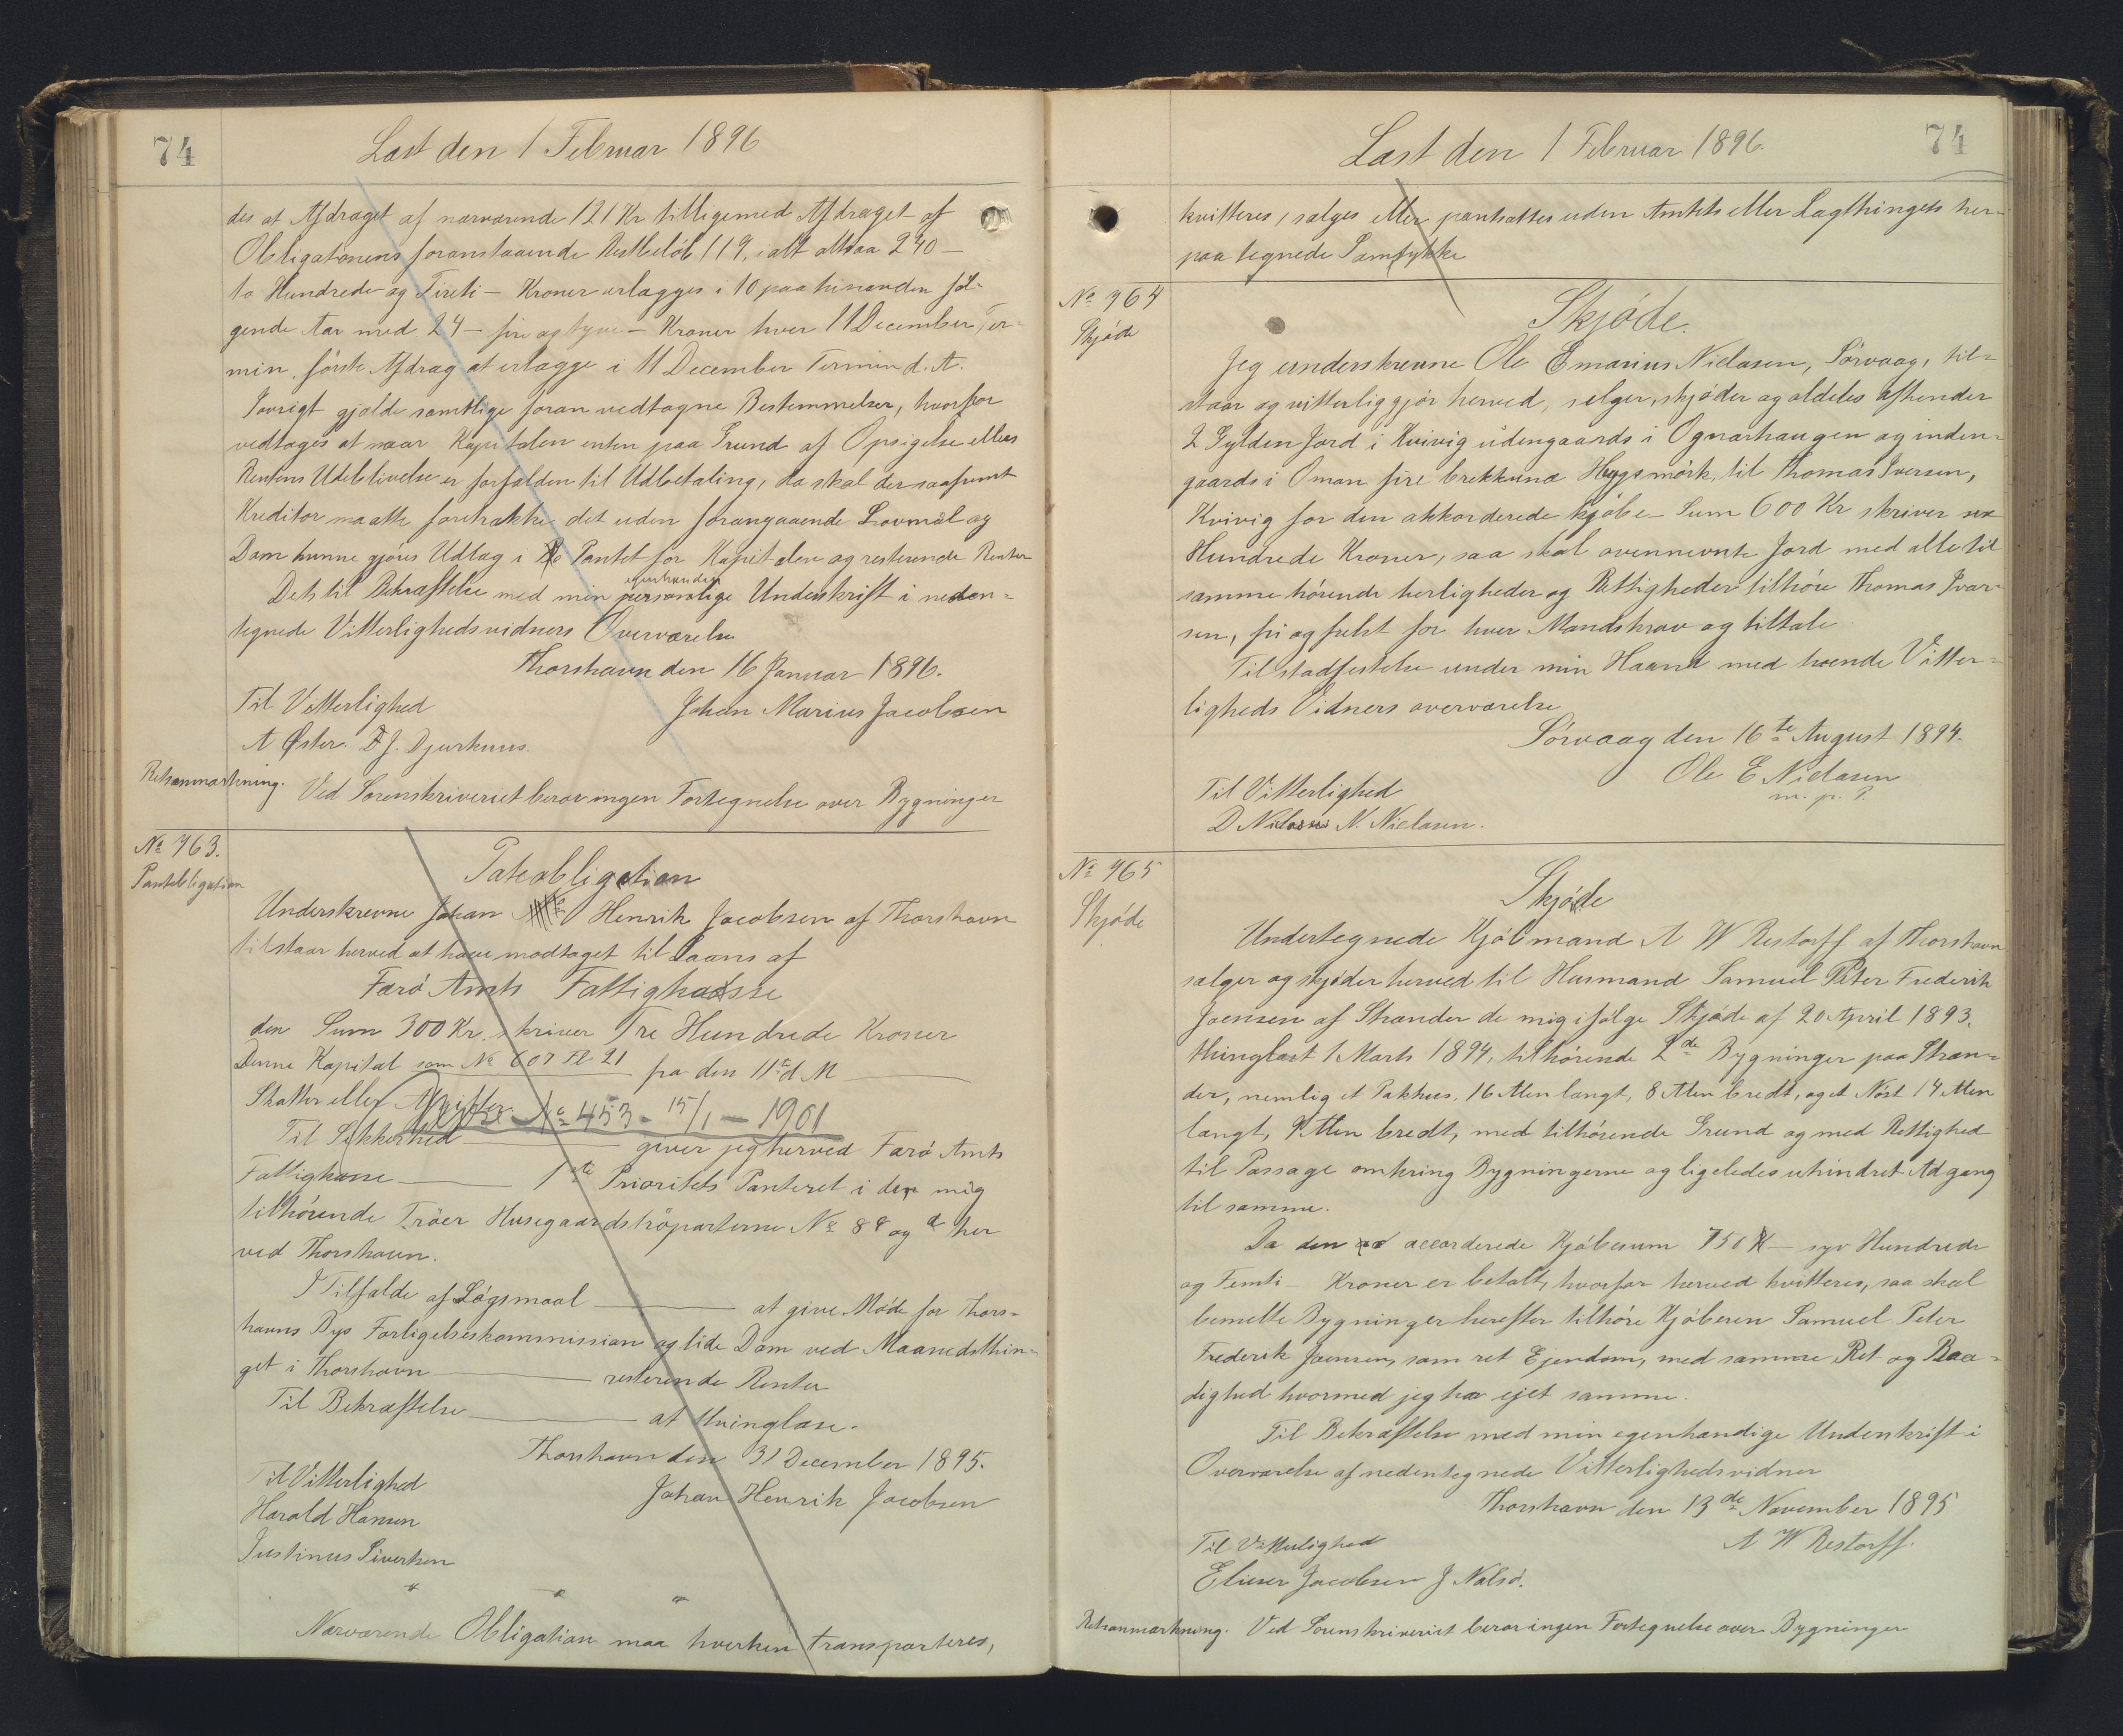 74
Læst den 1 Februar 1896
des at Afdraget af nærværende 121 Kr tilligemed Afdraget af
Obligationens foranstaaende Restbeløb 119, ialt altsaa 240 —
to Hundrede og Fireti — Kroner erlægges i 10 paa hinanden føl-
gende Aar med 24 — fire og tyve — Kroner hver 11 December Ter-
min, første Afdrag at erlægge i 11 December Termin d. A.
Iøvrigt gjælde samtlige foran vedtagne Bestemmelser, hvorfor
vedtages at naar Kapitalen enten paa Grund af Opsigelse eller
Rentens Udeblivelse er forfalden til Udbetaling, da skal der saafremt
Kreditor maatte foretrække det uden forangaaende Lovmål og
Dom kunne gjøres Udlæg i Pantet for Kapitalen og resterende Renter
Dets til Bekræftelse med min personlige egenhændige Underskrift i neden-
tegnede Vitterlighedsvidners Overværelse
Thorshavn den 16 Januar 1896.
Til Vitterlighed
Johan Marius Jacobsen
A Øster. D J. Djurhuus.
Retsanmærkning. Ved Sorenskriveriet beror ingen Fortegnelse over Bygninger
No 963.
Pantobligation
Panteobligation
Underskrevne Johan Henrik Jacobsen af Thorshavn
tilstaar herved at have modtaget til Laans af
Færø Amts Fattigkasse
den Sum 300 Kr. skriver Tre Hundrede Kroner
Denne Kapital som No 607 Fl. 21 fra den 11te d. M —
Skatter eller Afgifter.
No 453 - 15/1 - 1901
Til Sikkerhed — giver jeg herved Færø Amts
Fattigkasse — 1ste Prioritets Panteret i de mig
tilhørende Tröer Husegaardströparterne No 88 og d her
ved Thorshavn.
I Tilfælde af Løgsmaal — at give Møde for Thors-
havns Bys Forligelseskommission og lide Dom ved Maanedsthin-
get i Thorshavn — resterende Renter
Til Bekræftelse — at thinglæse.
Thorshavn den 31 December 1895.
Til Vitterlighed
Johan Henrik Jacobsen
Harald Hansen
Justinus Sivertsen
" " "
Nærværende Obligation maa hverken transporteres,
74
Læst den 1 Februar 1896.
kvitteres, sælges eller pantsættes uden Amtets eller Lagthingets her-
paa tegnede Samtykke
No 964
Skjøde
Skjøde.
Jeg underskrevne Ole Emarius Nielasen, Sörvaag, til-
staar og vitterliggjør herved, selger, skjøder og aldeles afhender
2 Gylden Jord i Kvivig udengaards i Ognarhaugen og inden-
gaards i Oman fire brekkuna Høgsmörk, til Thomas Iversen,
Kvivig for den akkorderede kjøbe-Sum 600 Kr skriver sex
Hundrede Kroner, saa skal ovennevnte Jord med alle til
samme hörende herligheder og Rettigheder tilhöre Thomas Ivar-
sen, fri og frelst for hver Mandskrav og tiltale
Til stadfestelse under min Haand med hoende Vitter-
ligheds Vidners overværelse
Sörvaag den 16te August 1894.
Ole E Nielasen
m. p. P.
Til Vitterlighed
D Nielasen N. Nielasen.
No 965
Skjøde
Skjøde
Undertegnede Kjøbmand A W Restorff af Thorshavn
sælger og skjøder herved til Husmand Samuel Peter Frederik
Joensen af Strænder de mig ifølge Skjøde af 20 April 1893,
thinglæst 1 Marts 1894, tilhørende 2de Bygninger paa Stræn-
der, nemlig et Pakhus, 16 Alen langt, 8 Alen bredt, og et Nøst 14 Alen
langt, 7 Alen bredt, med tilhørende Grund og med Rettighed
til Passage omkring Bygningerne og ligeledes uhindret Adgang
til samme.
Da den accorderede Kjøbesum 750 K — syv Hundrede
og Femti — Kroner er betalt, hvorfor herved kvitteres, saa skal
bemeldte Bygninger herefter tilhøre Kjøberen Samuel Peter
Frederik Joensen, som ret Ejendom, med samme Ret og Raa-
dighed hvormed jeg har ejet samme.
Til Bekræftelse med min egenhændige Underskrift i
Overværelse af nedentegnede Vitterlighedsvidner
Thorshavn den 13de November 1895
Til Vitterlighed
A W Restorff.
Elieser Jacobsen J Nolsö.
Retsanmærkning. Ved Sorenskriveriet beror ingen Fortegnelse over Bygninger